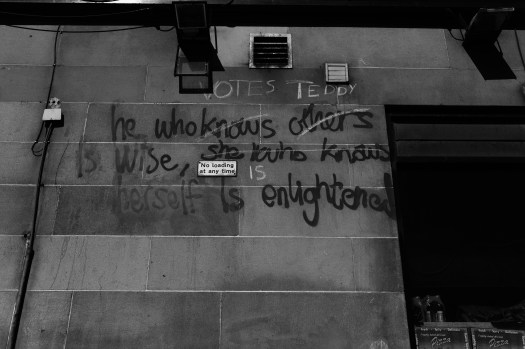 VOTES TEDDY
he who knows others
is wise, she who knows
No loading
at any time
IS
herself is enlightened